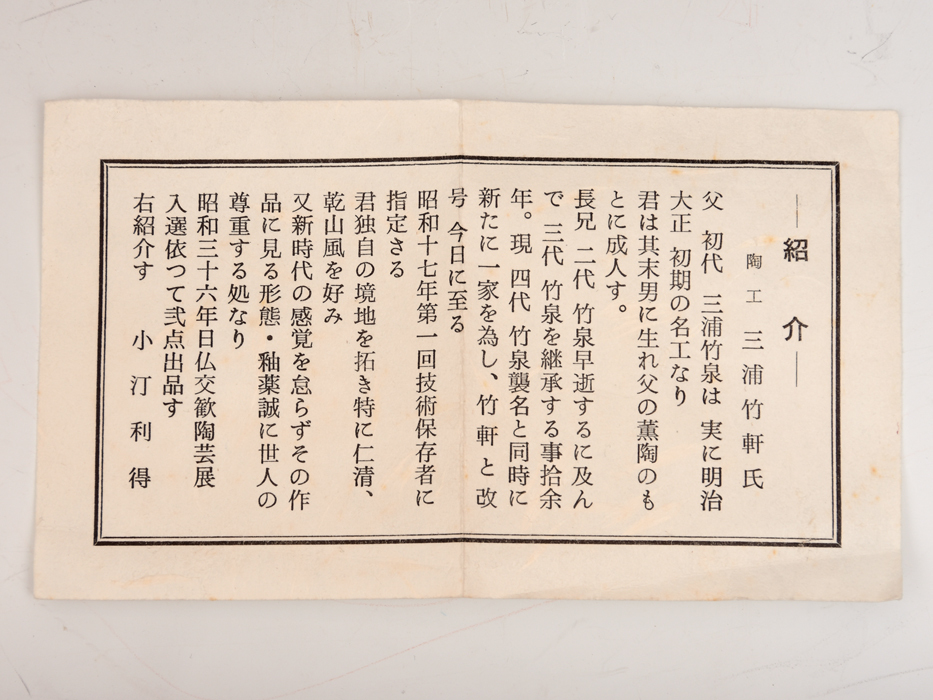 ―紹介―
陶工 三浦竹軒氏
父 初代 三浦竹泉は 実に明治
大正 初期の名工なり
君は其末男に生れ父の薫陶のも
とに成人す。
長兄 二代 竹泉早逝するに及ん
で 三代 竹泉を継承する事拾余
年。現 四代 竹泉襲名と同時に
新たに一家を為し、竹軒と改
号 今日に至る
昭和十七年第一回技術保存者に
指定さる
君独自の境地を拓き特に仁清、
乾山風を好み
又新時代の感覚を怠らずその作
品に見る形態・釉薬誠に世人の
尊重する処なり
昭和三十六年日仏交歓陶芸展
入選依つて弐点出品す
右紹介す 小汀利得